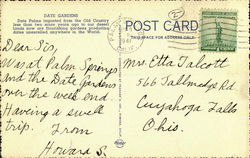 DATE GARDENS
Date Palms imported from the Old Country
less than two score years ago to our desert
lands now are flourishing gardens producing
dates unexcelled anywhere in the World.
POST CARD
THIS SPACE FOR ADDRESS ONLY
CALIF.
Dear Sis,
Was at Palm Springs
and the Date Gardens
over the week end.
Having a swell
trip. From
Howard S.
Mrs. Etta Talcott
566 Tallmadge Rd.
Cuyahoga Falls
Ohio.